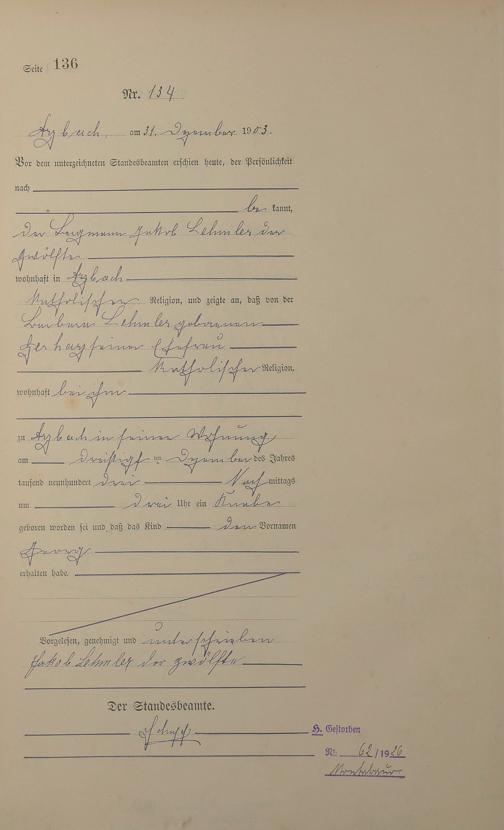 Seite 136
Nr. 134
Arzbach, am 31. Dezember 1903.
Vor dem unterzeichneten Standesbeamten erschien heute, der Persönlichkeit
nach
be kannt,
der Bergmann Jakob Lehmler der
zwölfte
wohnhaft in Arzbach
katholischer Religion, und zeigte an, daß von der
Barbara Lehmler geborenen
seiner Ehefrau
katholischer Religion,
wohnhaft bei ihm
zu Arzbach in seiner Wohnung
am dreißigsten Dezember des Jahres
tausend neunhundert drei Nach mittags
um drei Uhr ein Knabe
geboren worden sei und daß das Kind den Vornamen
Georg
erhalten habe.
Vorgelesen, genehmigt und unterschrieben
Jakob Lehmler der zwölfte
Der Standesbeamte.
H. Gestorben
Nr. 62/1926
Montabaur